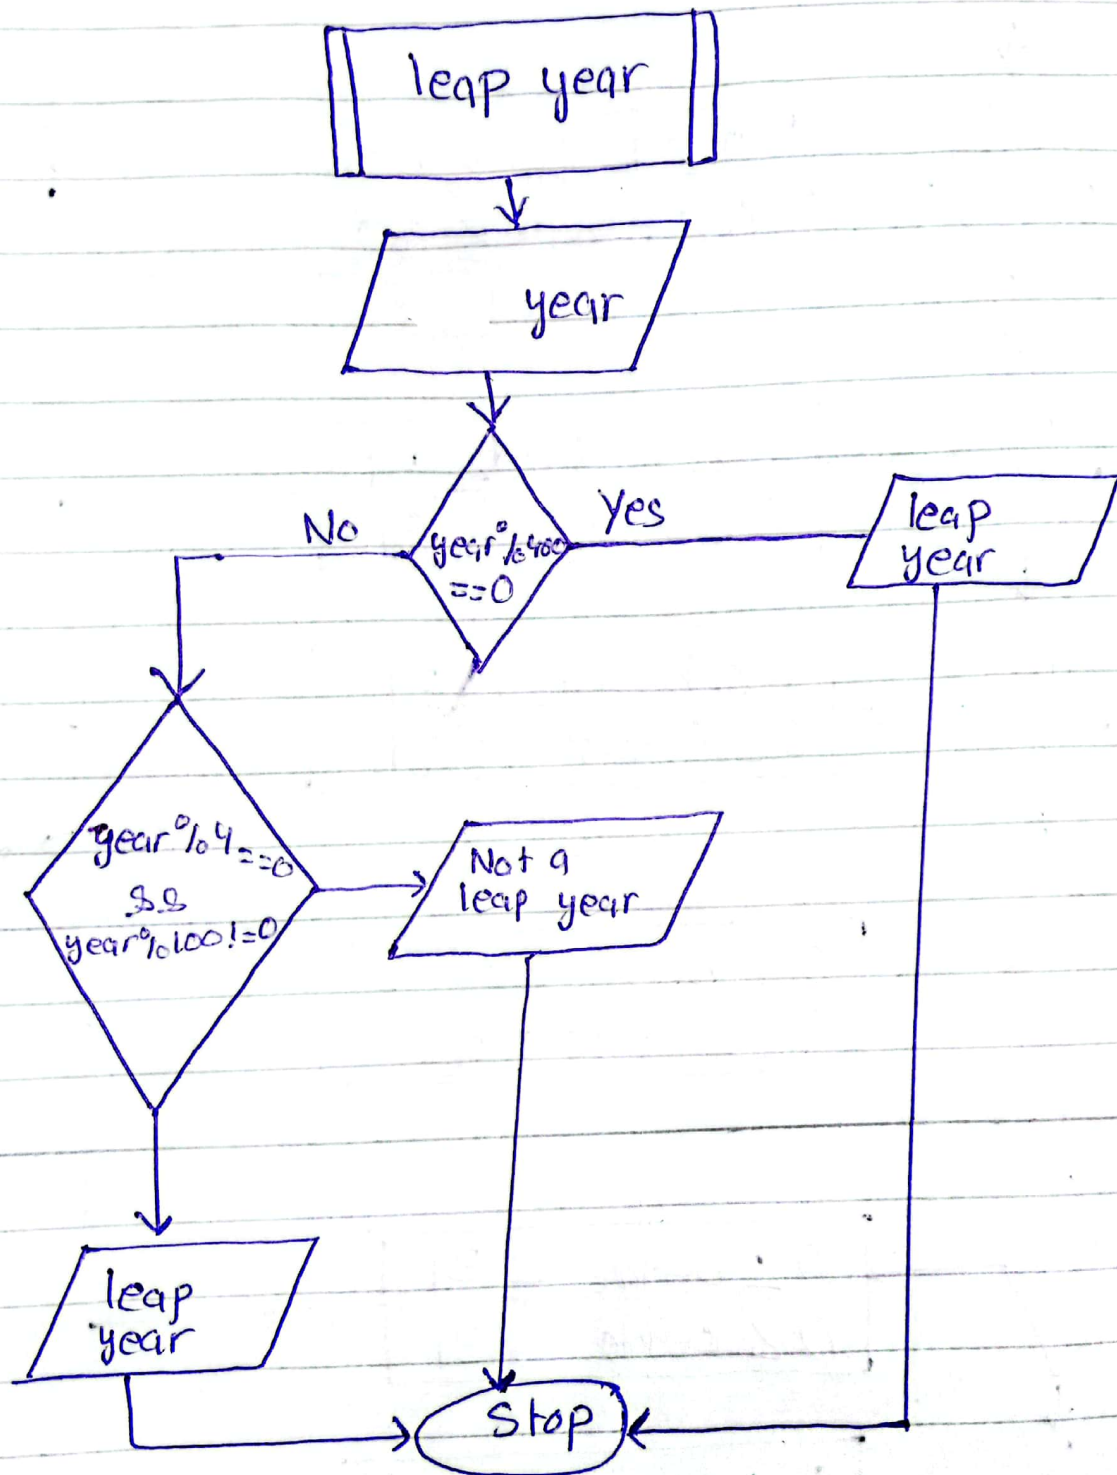 leap year
year
No
year%400
==0
Yes
leap
year
year%4==0
&&
year%100!=0
Not a
leap year
leap
year
Stop